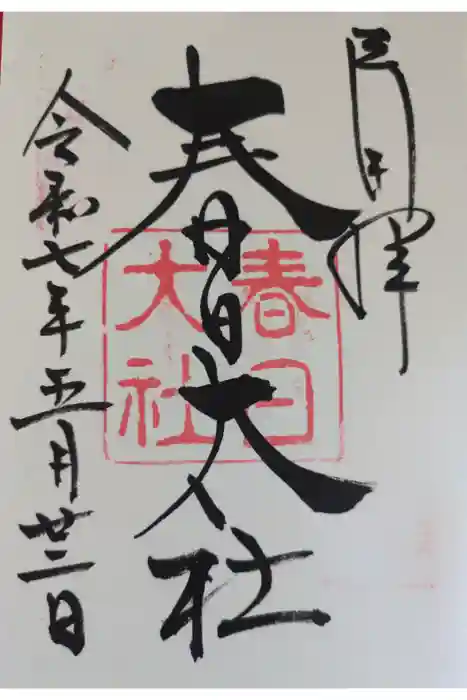 奉拝
春日大社
春日
大社
令和七年五月廿二日